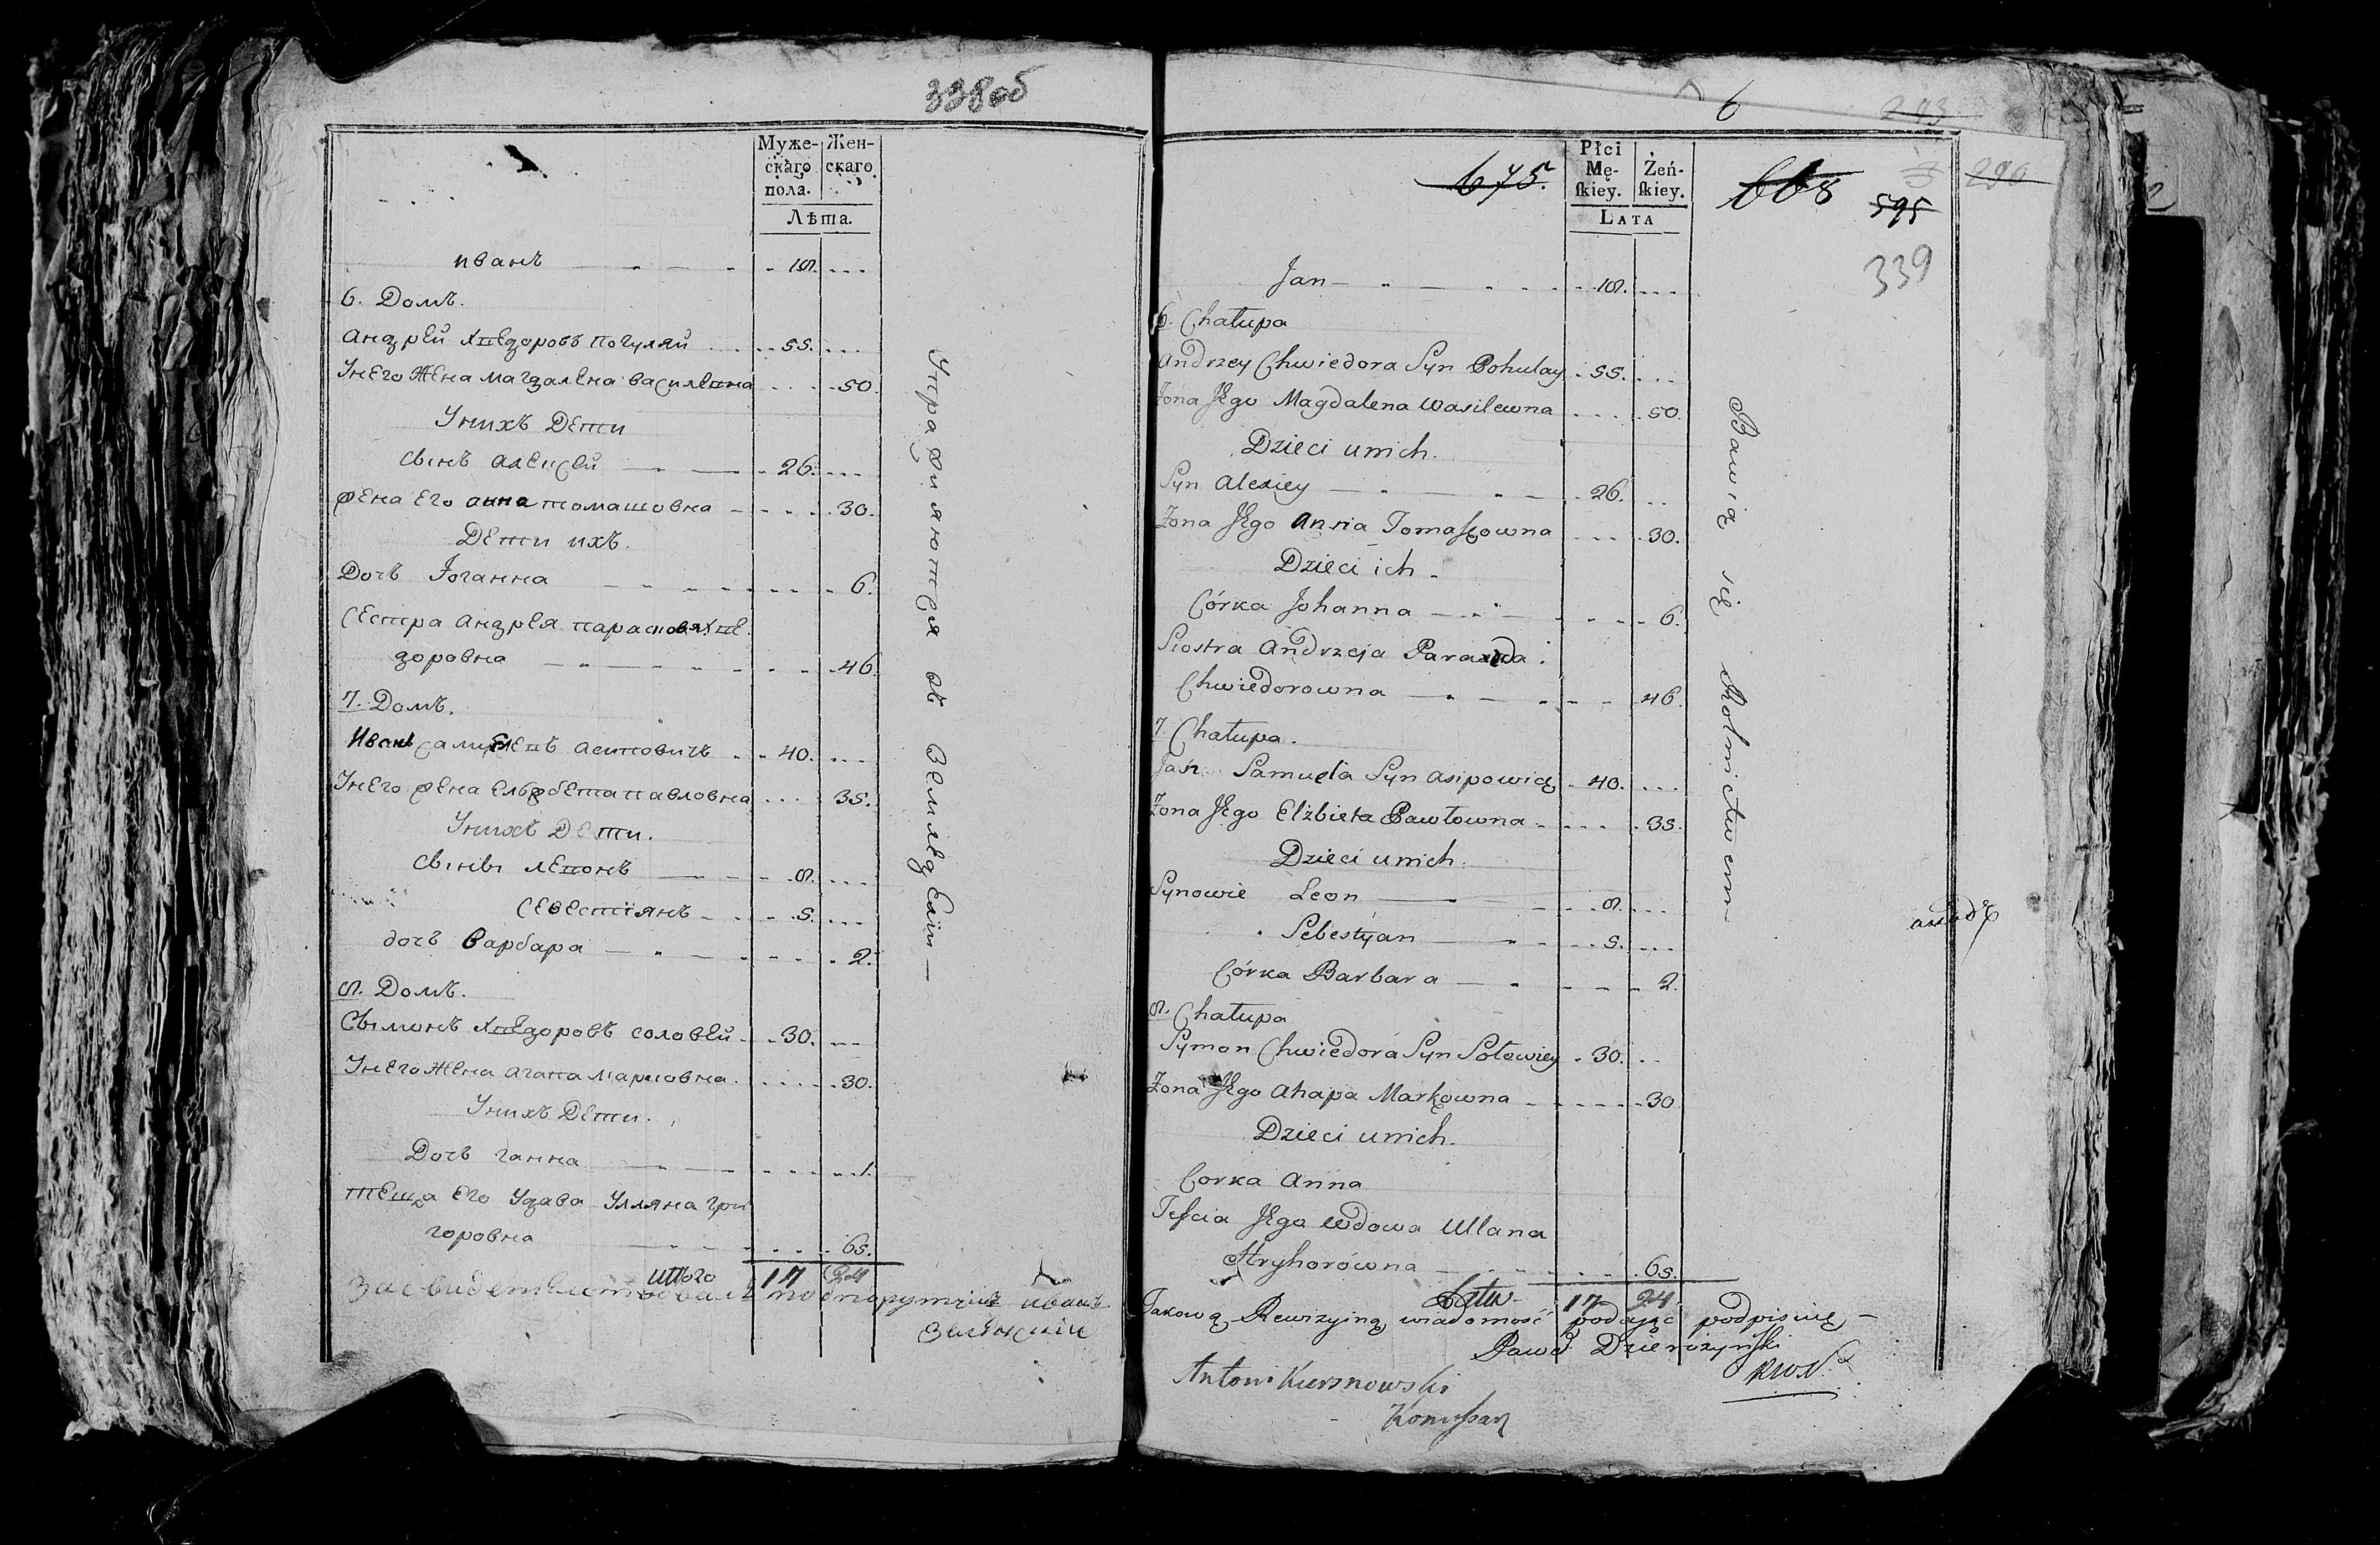 338об
Муже-
скаго
пола.
Жен-
скаго
Лѣта.
иванъ
6. Домъ.
андрей хведоровъ погуляй 55.
Унего жена магдалена василевна 50.
Унихъ Дети
сынъ алексей 26.
жена его анна томашовна 30.
Дети ихъ.
Дочь Іоганна 6.
Сестра андрея парасковя хве
доровна 46.
7. Домъ.
Иванъ асиповичъ 40.
Унего жена павловна 35.
Унихъ Дети.
сыны левонъ 8.
севестіянъ 5.
дочь варбара 2.
8. Домъ.
Сымонъ хведоровъ соловей 30.
Унего жена агапа марковна 30.
Унихъ Дети.
Дочь ганна 1.
теща его удава улляна гри
горовна 65.
итого 17 24
засвидетельствовалъ подпоручикъ иванъ
Упражняются въ земледелии
6
293
675.
Płci
Mę-
ſkiey.
Żeń-
ſkiey.
Lata
668
290
595
339
Jan
6. Chałupa
Andrzey Chwiedora Syn Pohulay 55.
Żona Jego Magdalena Wasilewna 50.
Dzieci unich.
Syn Alexiey 26.
Żona Jego Anna Tomaſzowna 30.
Dzieci ich
Córka Johanna 6.
Siostra Andrzeja
Chwiedorowna 46.
7. Chałupa.
Jan Samuela Syn Asipowicz 40.
Żona Jego Elżbieta Pawłowna 35.
Dzieci unich.
Synowie Leon 8.
Sebestyan 5.
Córka Barbara 2.
8. Chałupa
Symon Chwiedora Syn Sołowiey 30.
Żona Jego Ahapa Markowna 30
Dzieci unich.
Corka Anna
Teſcia Jego wdowa Ullana
Hryhorówna 65.
17 24
Takową Rewizyiną wiadomość podaiąc podpisuię
Paweł Dzierożyński
Antoni Kiersnowski
Bawią się Rolnictwem